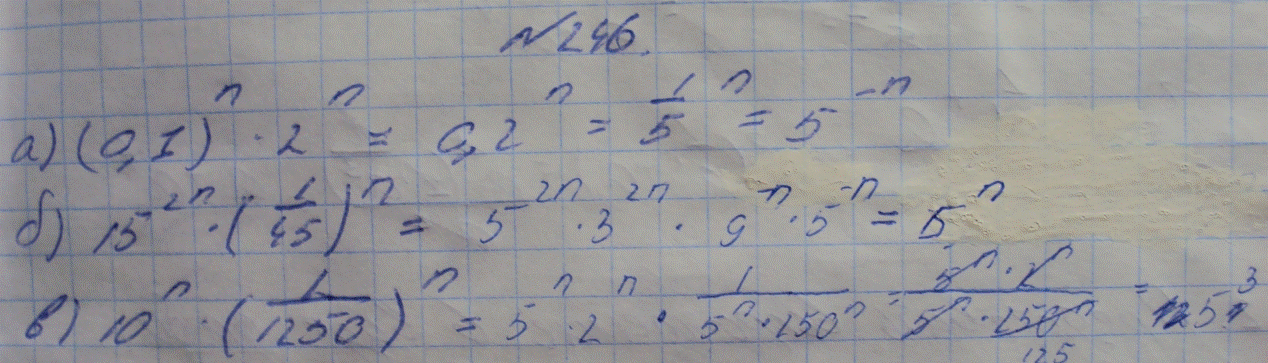 №246.
а) (0,1)ⁿ · 2ⁿ = 0,2ⁿ = 1/5ⁿ = 5⁻ⁿ
б) 15²ⁿ · (1/45)ⁿ = 5²ⁿ · 3²ⁿ · 9⁻ⁿ · 5⁻ⁿ = 5ⁿ
в) 10ⁿ · (1/1250)ⁿ = 5ⁿ · 2ⁿ · 1/(5ⁿ · 250ⁿ) = (5ⁿ · 2ⁿ)/(5ⁿ · 250ⁿ) =
125